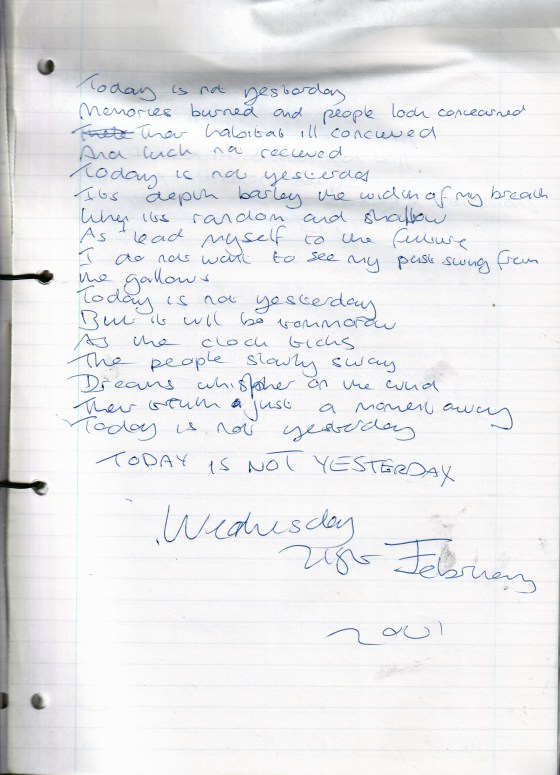 Today is not yesterday
Memories burned and people look concearned
Their habitat ill concieved
And luck not recieved
Today is not yesterday
Its depth barley the width of my breath
Why its random and shallow
As I lead myself to the future
I do not want to see my past swing from
the gallows
Today is not yesterday
But it will be tommorow
As the clock ticks
The people slowly sway
Dreams whisper on the wind
Their truth just a moment away
Today is not yesterday
TODAY IS NOT YESTERDAY
Wednesday
21st February
2001